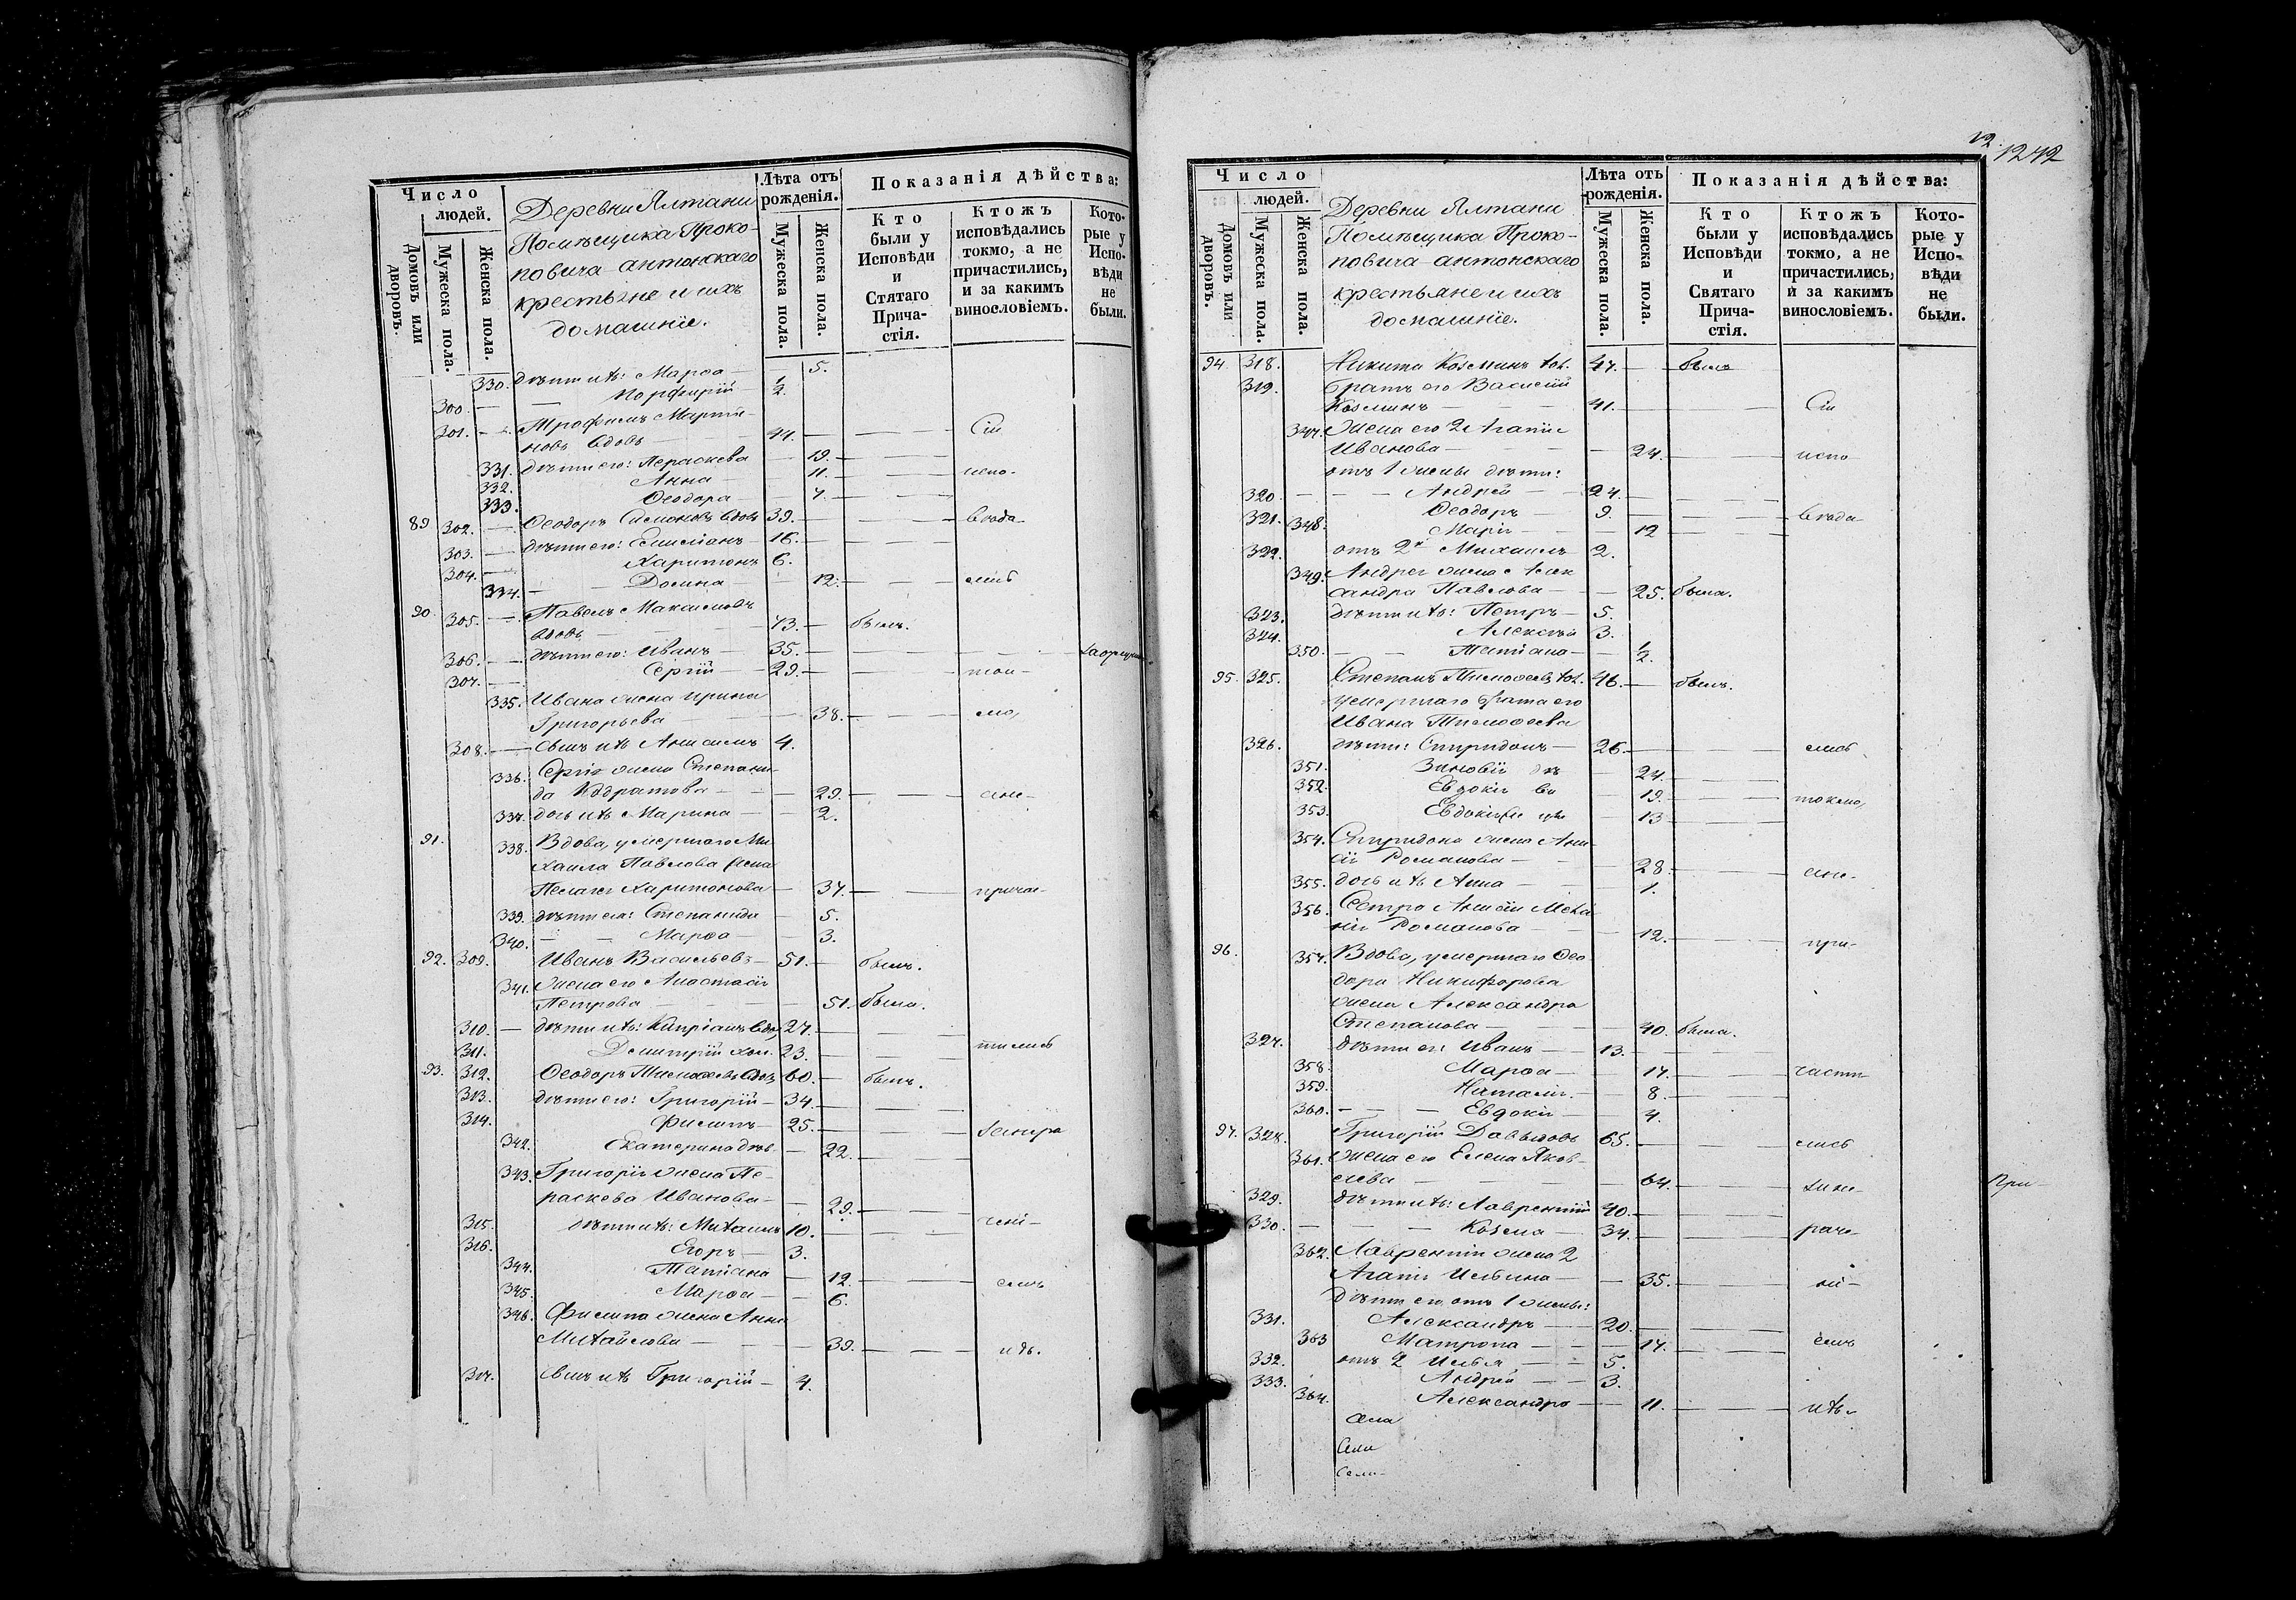 Число людей.
Домовъ или дворовъ.
Мужеска пола.
Женска пола.
Деревни Ялтани
Помѣщика Проко-
повича-антонскаго
крестьяне и ихъ
домашніе.
Лѣта отъ рожденія.
Мужеска пола.
Женска пола.
Показанія дѣйства:
Кто были у Исповѣди и Стятаго Прича-стія.
Ктожъ исповѣдались токмо, а не причастились, и за какимъ винословіемъ.
Кото-рые у Испо-вѣди не были.
330. дѣти ихъ: Марѳа — 5.
300. — — Порфирій — 1/2.
301. — Трофимъ Марти-
новъ вдовъ — 44. — Сіи
331. дѣти его: Параскева — 19. —
332. Анна — 11. — испо-
333. Ѳеодора — 7. —
89 302. — Ѳеодоръ Симоновъ вдовъ 39. — вѣда-
303. — дѣти его: Емиліанъ — 16. —
304. — Харитонъ 6.
334. — Домна — 12. — лись
90. 305. — Павелъ Максимовъ
вдовъ — 73. — былъ.
306. — дѣти его: Иванъ — 35. —
307. — Сергій — 29. — ток-
335. Ивана жена Ирина
Григорьева — 38. — мо,
308. — сынъ ихъ Анисимъ 4.
336. Сергія жена Степани-
да Кодратова — 29. — а не-
337. дочь ихъ Марина — 2.
91. 338. Вдова, умершаго Ми
хаила Павлова жена
Пелагія Харитонова — 37. — причас-
339. дѣти ея: Степанида — 5.
340. — — Марѳа — 3.
92. 309. Иванъ Васильевъ — 51. — былъ.
341. жена его Анастасія
Петрова — 51. была.
310. — дѣти ихъ: Кипріанъ вдо, 27. —
311. Димитрій хол. 23. — тились
93. 312. Ѳеодоръ Тимоѳеевъ вдов, 60. — былъ.
313. дѣти его: Григорій — 34. —
314. Филипъ — 25. —
342. Екатерина дѣв. — 22. —
343. Григорія жена Па-
раскева Иванова — 29. — чені-
315. дѣти ихъ: Михаилъ 10. —
316. Егоръ — 3.
344. Татіана — 12. — емъ
345. Марѳа — 6.
346. Филипа жена Анна
Михайлова — 39. — ихъ.
317. сынъ ихъ Григорій — 4.
12.
1242
Число людей.
Домовъ или дворовъ.
Мужеска пола.
Женска пола.
Деревни Ялтани
Помѣщика Проко-
повича-антонскаго
крестьяне и ихъ
домашніе.
Лѣта отъ рожденія.
Мужеска пола.
Женска пола.
Показанія дѣйства:
Кто были у Исповѣди и Святаго Прича-стія.
Ктожъ исповѣдались токмо, а не причастились, и за какимъ винословіемъ.
Кото-рые у Испо-вѣди не были.
94 318. Никита Козминъ хол. 47. — былъ
319. братъ его Василій
Козминъ — 41. — Сіи
347. жена его 2я Агапія
Иванова — 24. — испо-
отъ 1 жены дѣти:
320. — — — Андрей — 24. —
321. Ѳеодоръ — 9. — вѣда-
348. Марія — 12
322. отъ 2й Михаилъ 2.
349. Андрея жена Алек
сандра Павлова — 25. была.
323. дѣти ихъ: Петръ — 5.
324. Алексѣй 3.
350. — — Татіана — 1/2.
95. 325. Степанъ Тимоѳеевъ хол. 46. — былъ.
умершаго брата его
Ивана Тимоѳеева
326. дѣти: Спиридонъ — 26. — лись
351. Зиновія дѣ — 24. —
352. Евдокія ви — 19. — токмо,
353. Евдокія цы — 13 —
354. Спиридона жена Ани-
сія Романова — 28. — а не-
355. дочь ихъ Анна — 1.
356. Сестра Анисіи Мела
нія Романова — 12. — при-
96. 357. Вдова, умершаго Ѳео
дора Никифорова
жена Александра
Степанова — 40. была.
327. дѣти ея: Иванъ — 13. —
358. Марѳа — 17. — части-
359. Наталія. — 8. —
360. — — — Евдокія — 4.
97. 328. Григорій Давыдовъ 65. — лись
361. жена его Елена Яков-
лева — 64. —
329. дѣти ихъ: Лаврентій 40. —
330. — — — Козма — 34. — раче-
362. Лаврентія жена 2
Агапія Ильина — 35. — ні-
дѣти его отъ 1 жены:
331. Александръ — 20. —
363 Матрона — 17. — емъ
332. отъ 2 Илья — 5.
333. Андрей — 3.
364. Александра — 11. — ихъ
При-